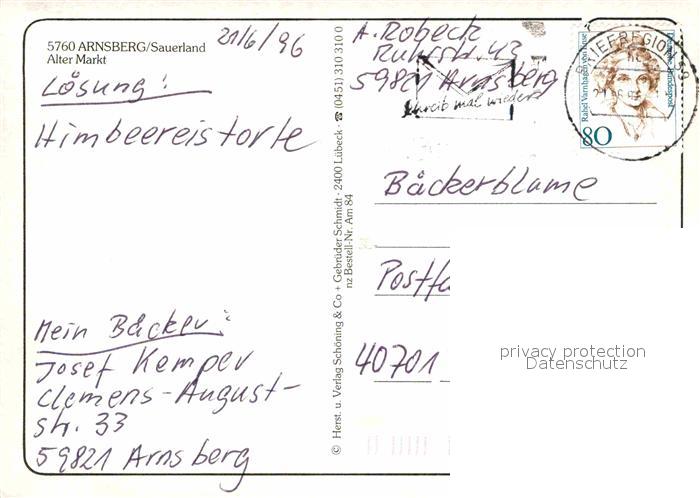 5760 ARNSBERG/Sauerland
Alter Markt
21/6/96
Lösung:
Himbeereistorte
Mein Bäcker:
Josef Kemper
Clemens-August-
str. 33
59821 Arnsberg
© Herst. u. Verlag Schöning & Co + Gebrüder Schmidt · 2400 Lübeck · ☎ (04 51) 310 310 0
nz Bestell-Nr. Am 84
A. Robeck
Ruhrstr. 43
59821 Arnsberg
schreib mal wieder
BRIEFREGION 59
Rahel Varnhagen von Ense
Deutsche Bundespost
80
Bäckerblume
Postfa
40701
privacy protection
Datenschutz